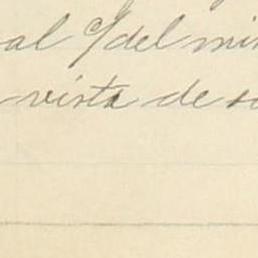 al c/ del mi
vista de s